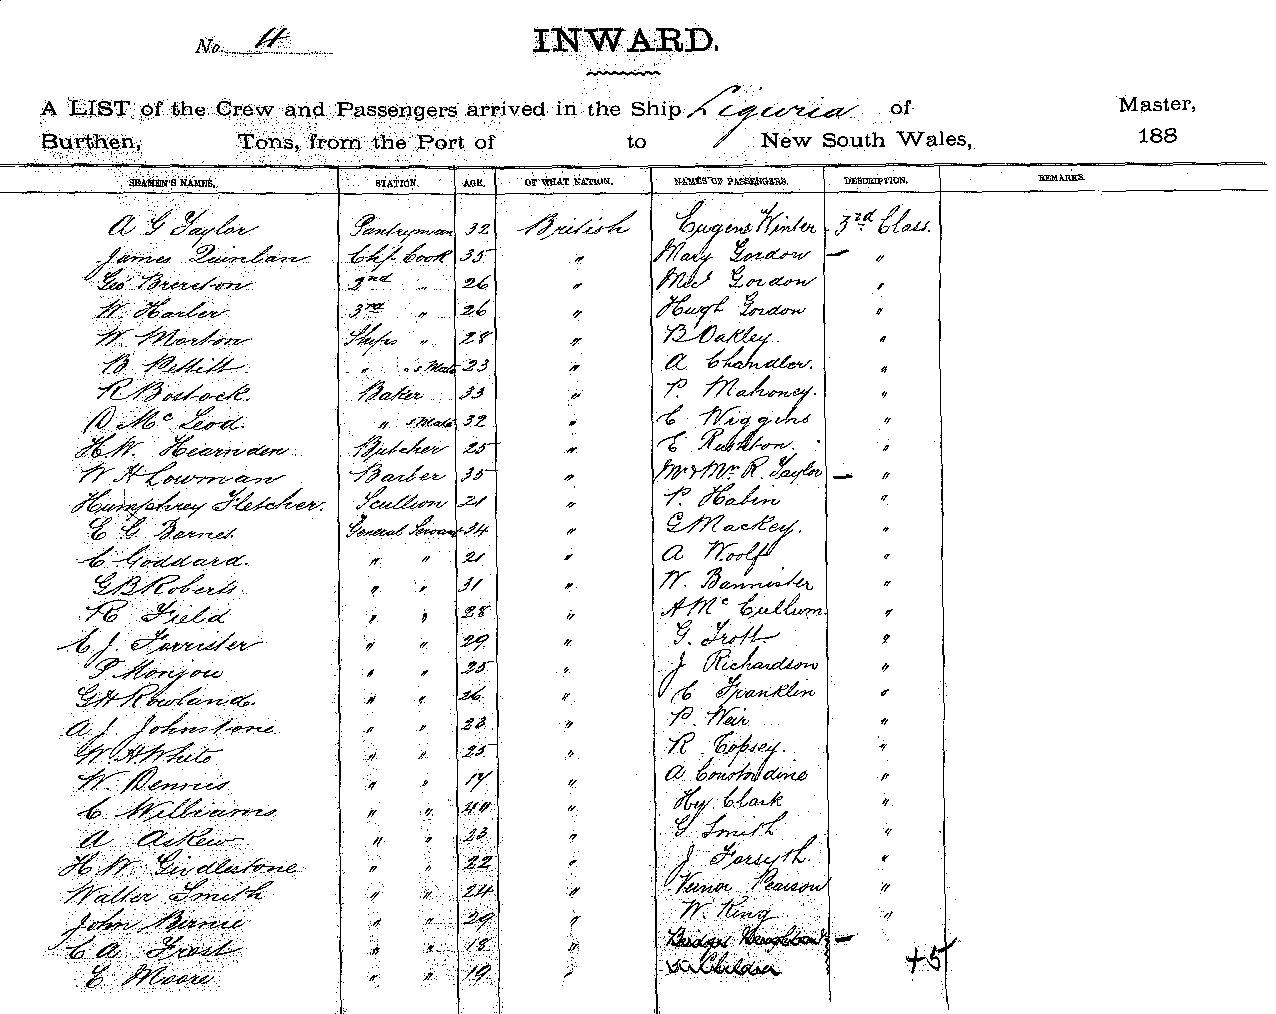 No. 4
INWARD.
A LIST of the Crew and Passengers arrived in the Ship Liguria of Master,
Burthen, Tons, from the Port of to New South Wales, 188
SEAMEN'S NAMES. STATION. AGE. OF WHAT NATION. NAMES OF PASSENGERS. DESCRIPTION. REMARKS.
A G Taylor Pantryman 32 British Eugene Winter 3rd Class.
James Quinlan Chf Cook 35 " Mary Gordon — "
Geo Brereton 2nd " 26 " Gordon "
W. Harler 3rd " 26 " Hugh Gordon "
W. Morton Ships " 28 " B Oakley "
B. Pettitt " "s Mate 23 " A Chandler. "
R Bostock. Baker 33 " P. Mahoney. "
D McLeod. " s Mate 32 " E Wiggins "
H.W. Hearnden Butcher 25 " E Rushton. "
W H Lowman Barber 35 " Mr & Mrs R. Taylor — "
Humphrey Fletcher. Scullion 21 " P Habin "
E G Barnes General Servant 24 " G Mackey. "
C Goddard. " " 21 " A Woolf "
G B Roberts " " 31 " W. Bannister "
R Field " " 28 " A McCullum "
C J. Forrister " " 29 " G. Trott "
P Monjou " " 25 " J Richardson "
G H Rowland. " " 26 " C Franklin "
A J. Johnstone " " 23 " P. Weir "
W H White " " 25 " R Copsey. "
W. Dennis " " 17 " A Constandine "
C. Williams " " 24 " Hy Clark "
A Askew " " 23 " G Smith "
H W. Girdlestone " " 22 " J Forsyth "
Walter Smith " " 24 " Vernor Pearson "
John Birnie " " 29 " W. King "
C A Frost " " 18 " —
E Moore " " 19 " Children +5